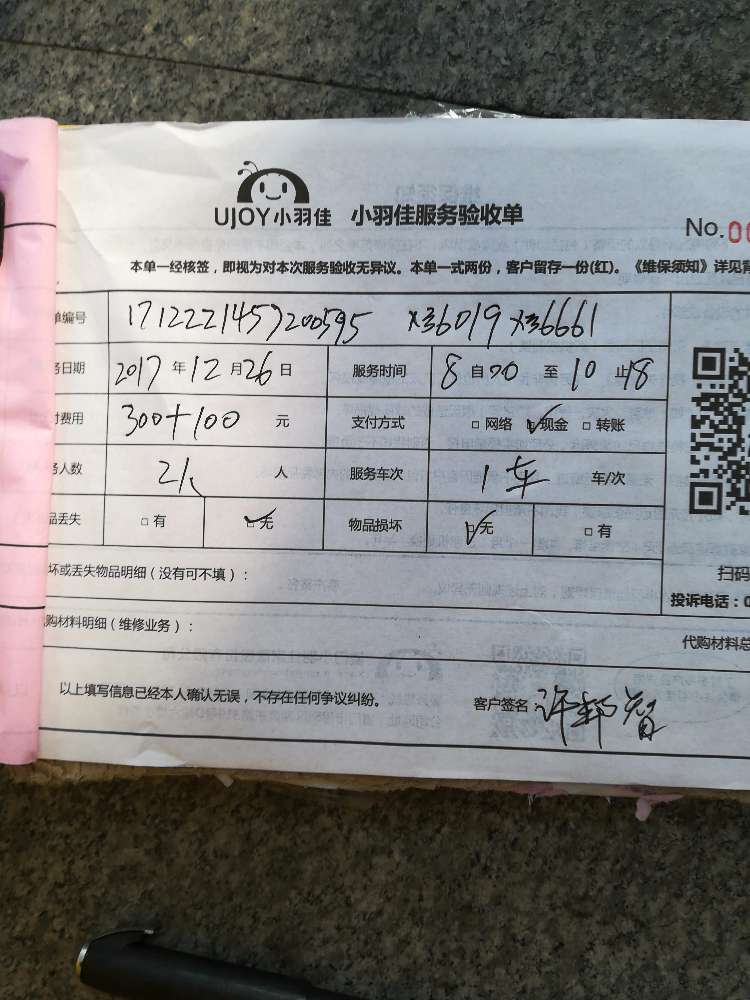 UJOY小羽佳 小羽佳服务验收单
No.00
本单一经核签，即视为对本次服务验收无异议。本单一式两份，客户留存一份(红)。《维保须知》详见背
单编号 1712221457200595 X36019 X36661
务日期 2017 年 12 月 26 日 服务时间 8 自 00 至 10 止 18
付费用 300+100 元 支付方式 □ 网络 ☑ 现金 □ 转账
务人数 2人 人 服务车次 1车 车/次
品丢失 □ 有 ☑ 无 物品损坏 ☑ 无 □ 有
坏或丢失物品明细（没有可不填）：
扫码
投诉电话：0
购材料明细（维修业务）：
代购材料总
以上填写信息已经本人确认无误，不存在任何争议纠纷。 客户签名：许邦智